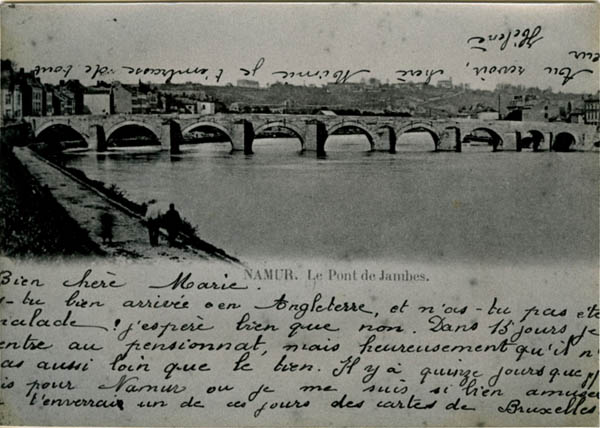 NAMUR. Le Pont de Jambes.
Bien chère Marie.
s-tu bien arrivée en Angleterre, et n'as-tu pas été
malade! j'espère bien que non. Dans 15 jours je
entre au pensionnat, mais heureusement qu'il n'
as aussi loin que le tien. Il y à quinze jours que j'
is pour Namur ou je me suis si bien amusée
t'enverrai un de ces jours des cartes de Bruxelles
Au revoir, chère Mimie je t'embrasse de tout
œur
Hélène